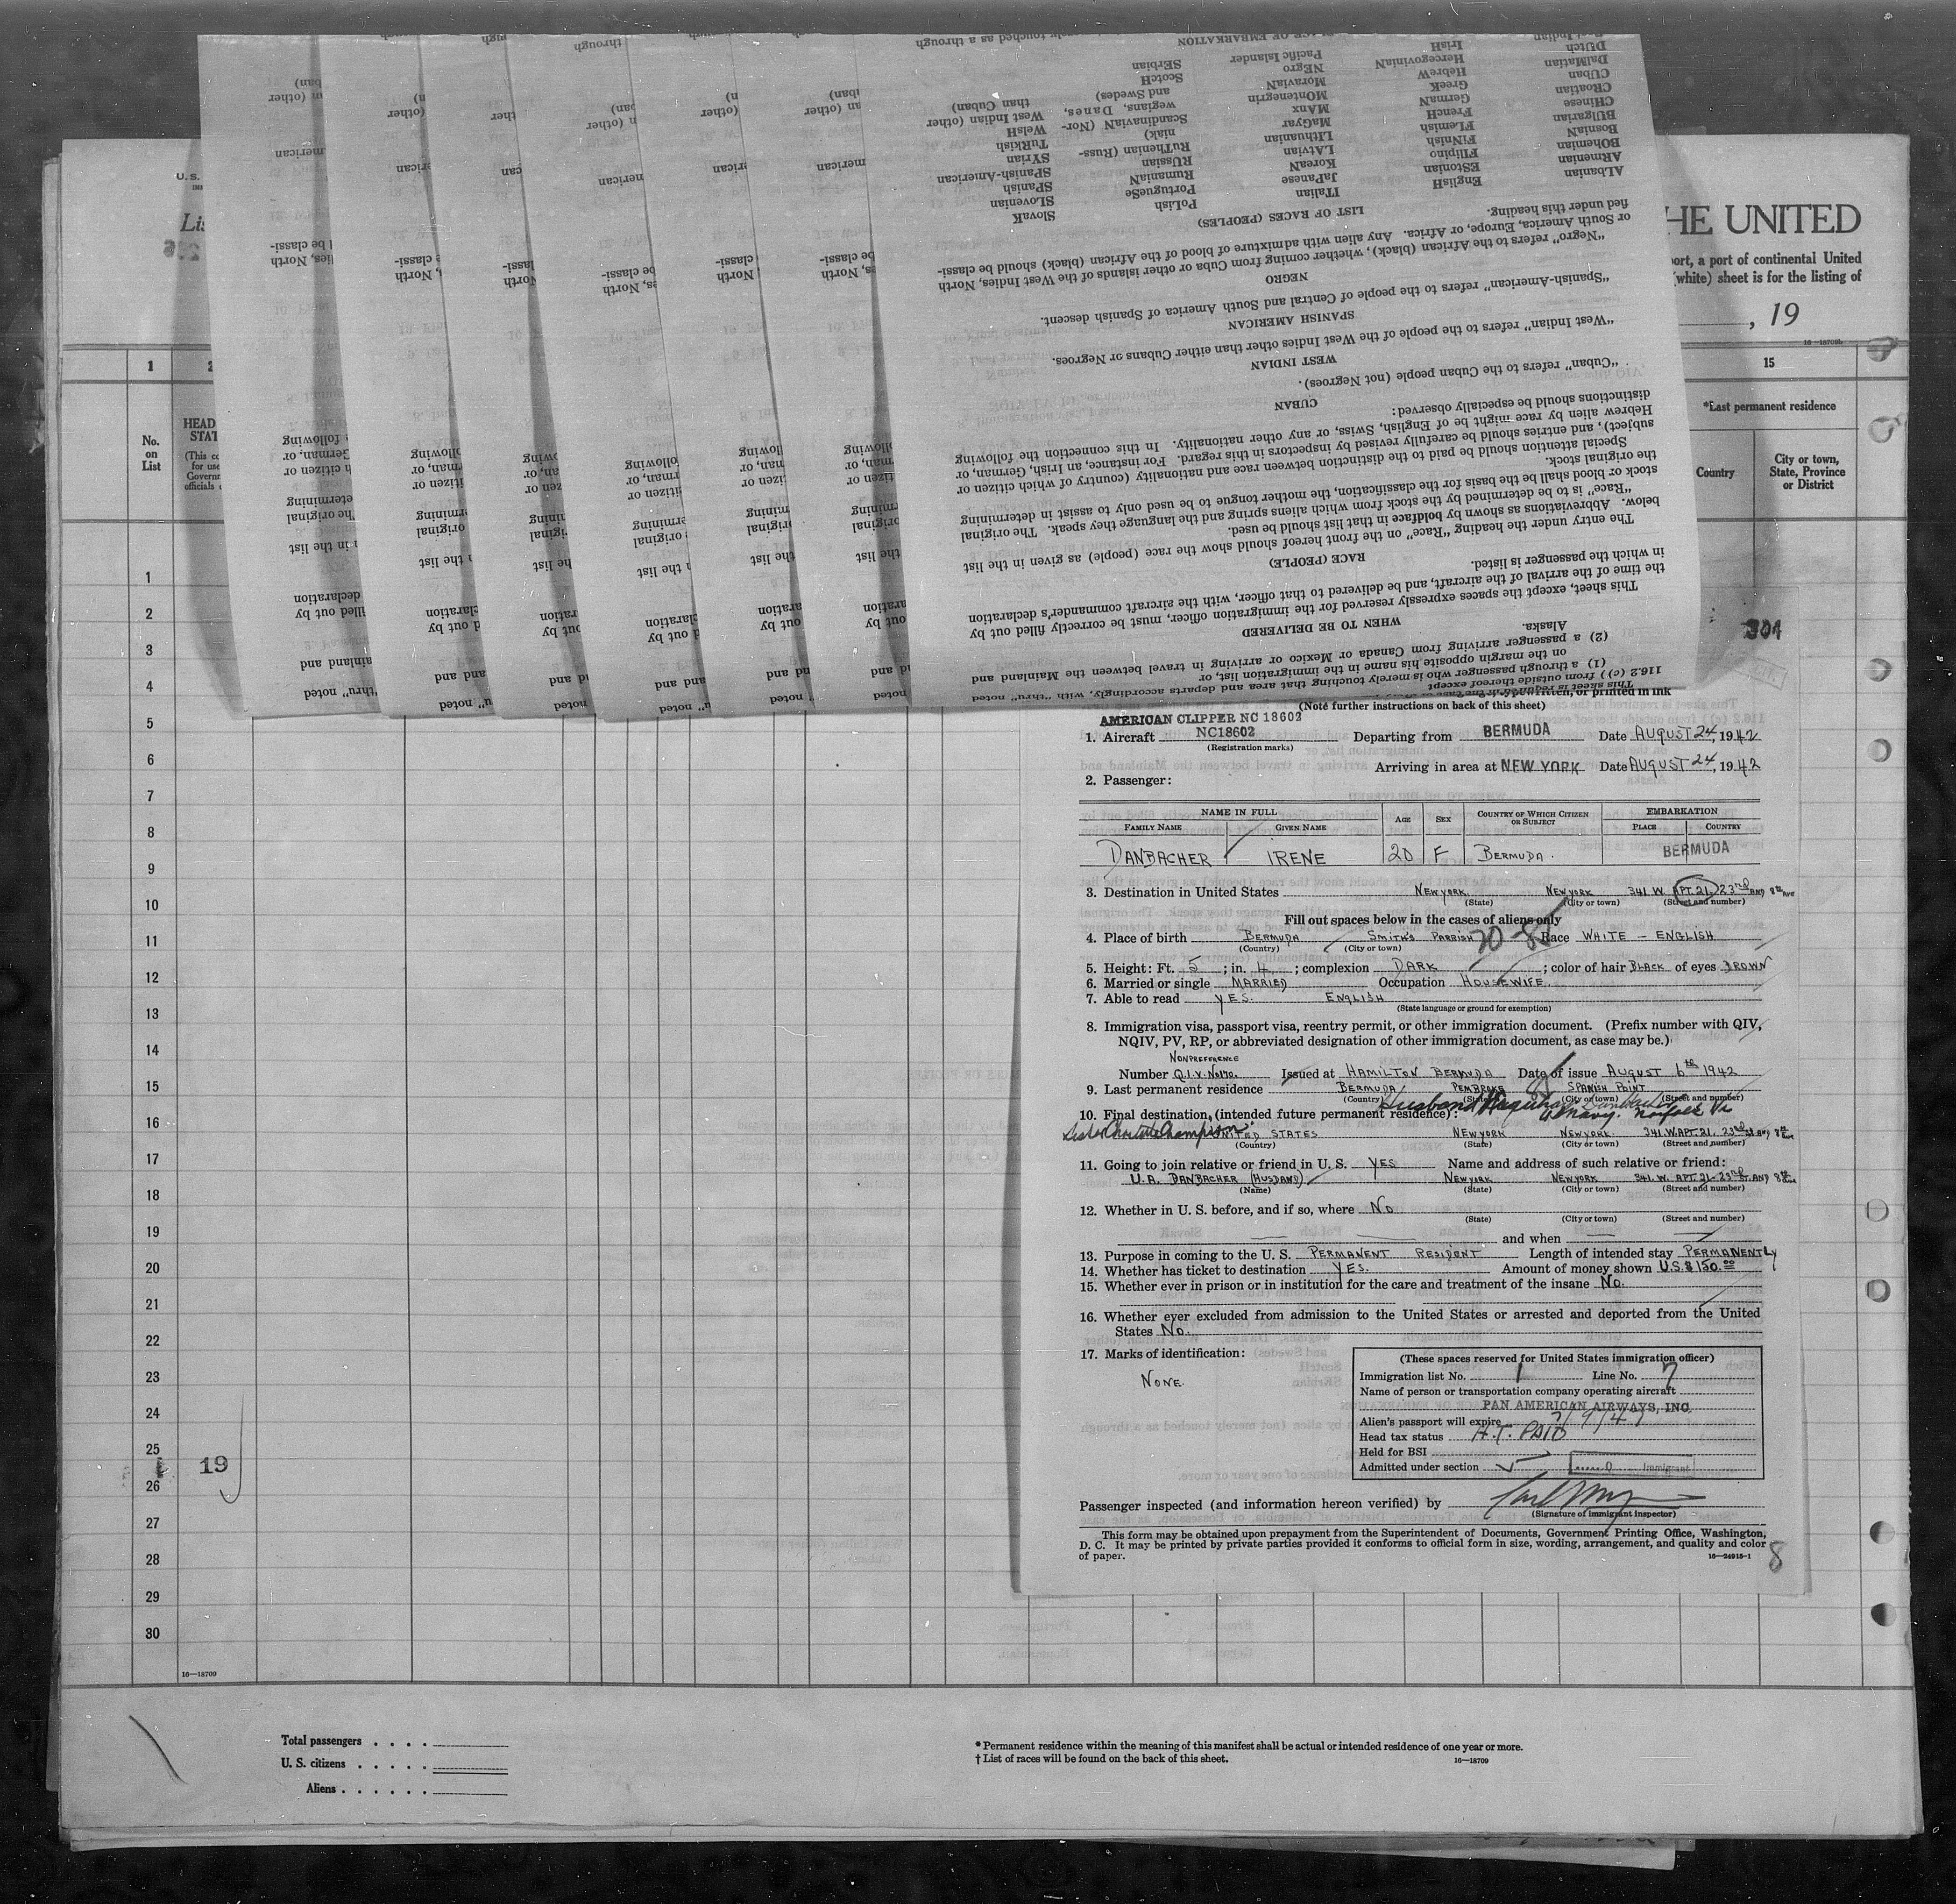 U. S.
Lis
HE UNITED
ort, a port of continental United
(white) sheet is for the listing of
, 19
16—18709b
1
2
15
No.
on
List
HEAD
STAT
(This co
for use
Governm
officials
*Last permanent residence
Country
City or town,
State, Province
or District
PLACE OF EMBARKATION
ALbanian
ARmenian
BOhemian
BosniaN
BUlgarian
CHinese
CRoatian
CUbaN
DalMatian
DUtch
EnglisH
EStonian
FIlipino
FiNnish
FLemish
FrencH
GermaN
GreeK
HebreW
HercegoviniaN
IrisH
ITalian
JaPanese
KoreaN
LAtvian
LIthuanian
MaGyar
MAnx
MOntenegrin
MoraviaN
NEgro
Pacific Islander
PoLish
PortugueSe
RumaniaN
RUssian
RuThenian (Russ-
niak)
ScandinaviaN (Nor-
wegians, Danes,
and Swedes)
ScotcH
SErbian
SlovaK
SLovenian
SPanish
SPanish-American
SYrian
TuRkish
WelsH
West Indian (other
than Cuban)
LIST OF RACES (PEOPLES)
fied under this heading.
or South America, Europe, or Africa. Any alien with admixture of blood of the African (black) should be classi-
"Negro" refers to the African (black), whether coming from Cuba or other islands of the West Indies, North
NEGRO
"Spanish-American" refers to the people of Central and South America of Spanish descent.
SPANISH AMERICAN
"West Indian" refers to the people of the West Indies other than either Cubans or Negroes.
WEST INDIAN
"Cuban" refers to the Cuban people (not Negroes).
CUBAN
distinctions should be especially observed:
Hebrew alien by race might be of English, Swiss, or any other nationality. In this connection the following
subject), and entries should be carefully revised by inspectors in this regard. For instance, an Irish, German, or
Special attention should be paid to the distinction between race and nationality (country of which citizen or
the original stock.
stock or blood shall be the basis for the classification, the mother tongue to be used only to assist in determining
"Race" is to be determined by the stock from which aliens spring and the language they speak. The original
below. Abbreviations as shown by boldface in that list should be used.
The entry under the heading "Race" on the front hereof should show the race (people) as given in the list
RACE (PEOPLE)
in which the passenger is listed.
the time of the arrival of the aircraft, and be delivered to that officer, with the aircraft commander's declaration
This sheet, except the spaces expressly reserved for the immigration officer, must be correctly filled out by
WHEN TO BE DELIVERED
Alaska.
(2) a passenger arriving from Canada or Mexico or arriving in travel between the Mainland and
on the margin opposite his name in the immigration list, or
(1) a through passenger who is merely touching that area and departs accordingly, with "thru" noted
116.2 (c)) from outside thereof except
304
ten, or printed in ink
(Note further instructions on back of this sheet)
AMERICAN CLIPPER NC 18602
1. Aircraft NC18602 Departing from BERMUDA Date AUGUST 24, 1942
(Registration marks)
Arriving in area at NEW YORK Date AUGUST 24, 1942
2. Passenger:
NAME IN FULL AGE SEX COUNTRY OF WHICH CITIZEN OR SUBJECT EMBARKATION
FAMILY NAME GIVEN NAME PLACE COUNTRY
DANBACHER IRENE 20 F BERMUDA. BERMUDA
3. Destination in United States NEW YORK NEW YORK 341 W. APT. 21, 23rd AND 8th AVE
(State) (City or town) (Street and number)
Fill out spaces below in the cases of aliens only
4. Place of birth BERMUDA SMITH'S PARRISH Race WHITE - ENGLISH
(Country) (City or town)
5. Height: Ft. 5; in. 4; complexion DARK; color of hair BLACK of eyes BROWN
6. Married or single MARRIED Occupation HOUSEWIFE.
7. Able to read YES. ENGLISH
(State language or ground for exemption)
8. Immigration visa, passport visa, reentry permit, or other immigration document. (Prefix number with QIV,
NQIV, PV, RP, or abbreviated designation of other immigration document, as case may be.)
NONPREFERENCE
Number Q.I.V. No 170. Issued at HAMILTON BERMUDA Date of issue AUGUST 6th 1942
9. Last permanent residence BERMUDA PEMBROKE SPANISH POINT
(Country) (State) (Street and number)
Husband Danbacher
10. Final destination, (intended future permanent residence): US Navy. Norfolk Va
Sister Charlotte Champion UNITED STATES NEW YORK NEW YORK 341. W. APT. 21. 23rd ST. AND 8th AVE
(Country) (State) (City or town) (Street and number)
11. Going to join relative or friend in U. S. YES Name and address of such relative or friend:
U. A. DANBACHER (HUSBAND) NEW YORK NEW YORK 341. W. APT. 21. 23rd ST. AND 8th AVE
(Name) (State) (City or town) (Street and number)
12. Whether in U. S. before, and if so, where NO
(State) (City or town) (Street and number)
and when
13. Purpose in coming to the U. S. PERMANENT RESIDENT Length of intended stay PERMANENTLY
14. Whether has ticket to destination YES. Amount of money shown U.S.$150.00
15. Whether ever in prison or in institution for the care and treatment of the insane NO.
16. Whether ever excluded from admission to the United States or arrested and deported from the United
States NO.
17. Marks of identification:
NONE.
(These spaces reserved for United States immigration officer)
Immigration list No. 1 Line No. 7
Name of person or transportation company operating aircraft
PAN AMERICAN AIRWAYS, INC.
Alien's passport will expire 7/9/47
Head tax status H.T. PAID
Held for BSI
Admitted under section Immigrant
Passenger inspected (and information hereon verified) by
(Signature of immigrant inspector)
This form may be obtained upon prepayment from the Superintendent of Documents, Government Printing Office, Washington,
D. C. It may be printed by private parties provided it conforms to official form in size, wording, arrangement, and quality and color
of paper.
16—24915-1
8
1
2
3
4
5
6
7
8
9
10
11
12
13
14
15
16
17
18
19
20
21
22
23
24
25
19
26
27
28
29
30
16—18709
Total passengers . . . .
U. S. citizens . . . . .
Aliens . . . . . .
* Permanent residence within the meaning of this manifest shall be actual or intended residence of one year or more.
† List of races will be found on the back of this sheet.
16—18709